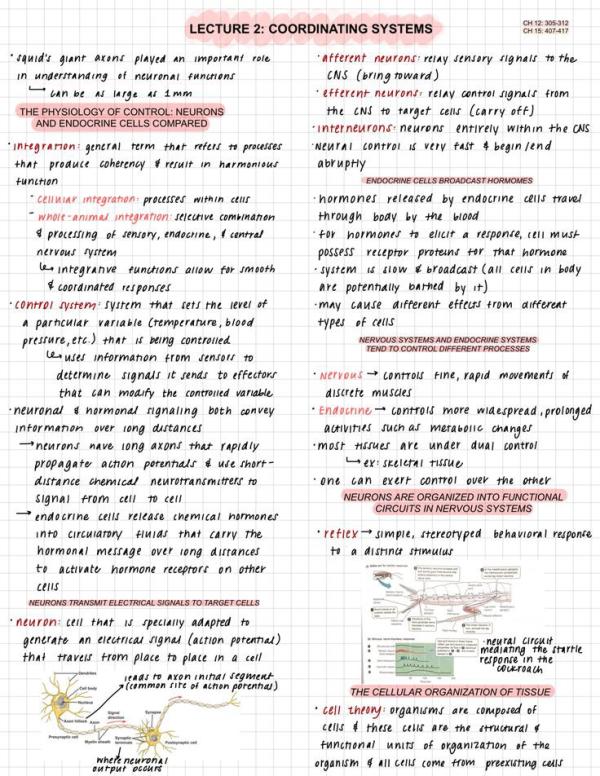 LECTURE 2: COORDINATING SYSTEMS
CH 12: 305-312
CH 15: 407-417
· squid's giant axons played an important role
in understanding of neuronal functions
↳ can be as large as 1mm
THE PHYSIOLOGY OF CONTROL: NEURONS
AND ENDOCRINE CELLS COMPARED
· integration: general term that refers to processes
that produce coherency & result in harmonious
function
- cellular integration: processes within cells
- whole-animal integration: selective combination
& processing of sensory, endocrine, & central
nervous system
↳ integrative functions allow for smooth
& coordinated responses
· control system: system that sets the level of
a particular variable (temperature, blood
pressure, etc.) that is being controlled
↳ uses information from sensors to
determine signals it sends to effectors
that can modify the controlled variable
· neuronal & hormonal signaling both convey
information over long distances
→ neurons have long axons that rapidly
propagate action potentials & use short-
distance chemical neurotransmitters to
signal from cell to cell
→ endocrine cells release chemical hormones
into circulatory fluids that carry the
hormonal message over long distances
to activate hormone receptors on other
cells
NEURONS TRANSMIT ELECTRICAL SIGNALS TO TARGET CELLS
· neuron: cell that is specially adapted to
generate an electrical signal (action potential)
that travels from place to place in a cell
Dendrites
leads to axon initial segment
(common site of action potential)
Cell body
Nucleus
Signal
direction
Synapse
Axon hillock
Axon
Presynaptic cell
Myelin sheath
Synaptic
terminals
Postsynaptic cell
where neuronal
output occurs
· afferent neurons: relay sensory signals to the
CNS (bring toward)
· efferent neurons: relay control signals from
the CNS to target cells (carry off)
· interneurons: neurons entirely within the CNS
· Neural control is very fast & begin/end
abruptly
ENDOCRINE CELLS BROADCAST HORMOMES
· hormones released by endocrine cells travel
through body by the blood
· for hormones to elicit a response, cell must
possess receptor proteins for that hormone
· system is slow & broadcast (all cells in body
are potentially bathed by it)
· may cause different effects from different
types of cells
NERVOUS SYSTEMS AND ENDOCRINE SYSTEMS
TEND TO CONTROL DIFFERENT PROCESSES
· Nervous → controls fine, rapid movements of
discrete muscles
· Endocrine → controls more widespread, prolonged
activities such as metabolic changes
· most tissues are under dual control
↳ ex: skeletal tissue
· one can exert control over the other
NEURONS ARE ORGANIZED INTO FUNCTIONAL
CIRCUITS IN NERVOUS SYSTEMS
· reflex → simple, stereotyped behavioral response
to a distinct stimulus
· neural circuit
mediating the startle
response in the
cockroach
THE CELLULAR ORGANIZATION OF TISSUE
· cell theory: organisms are composed of
cells & these cells are the structural &
functional units of organization of the
organism & all cells come from preexisting cells